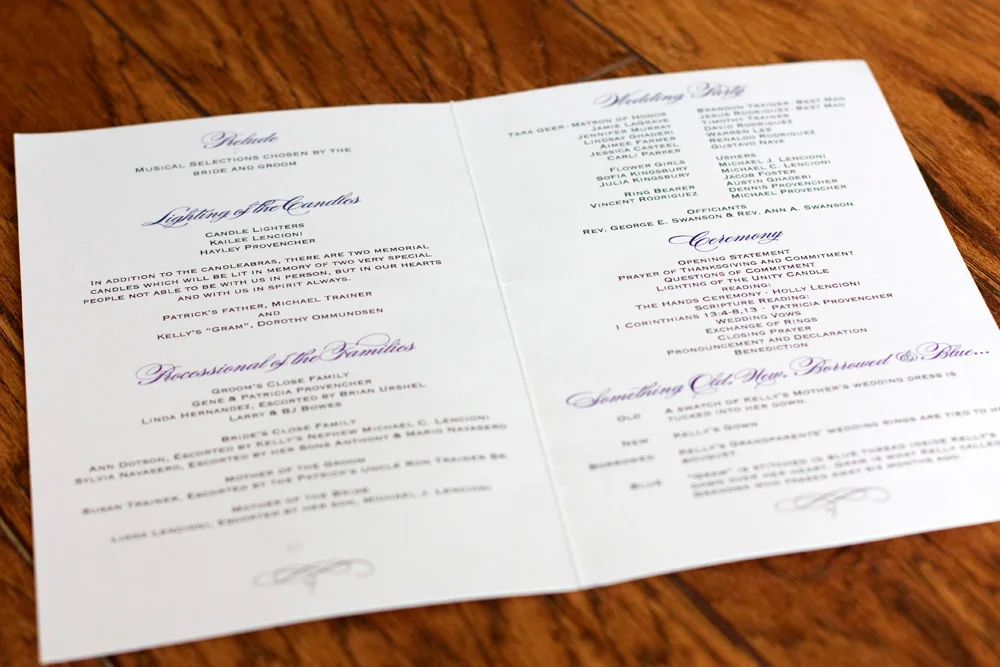 Prelude
Musical Selections chosen by the
bride and groom
Lighting of the Candles
Candle Lighters
Kailee Lencioni
Hayley Provencher
In addition to the candleabras, there are two memorial
candles which will be lit in memory of two very special
people not able to be with us in person, but in our hearts
and with us in spirit always.
Patrick's father, Michael Trainer
and
Kelly's "Gram", Dorothy Ommundsen
Processional of the Families
Groom's Close Family
Gene & Patricia Provencher
Linda Hernandez, Escorted by Brian Urshel
Larry & BJ Bowes
Bride's Close Family
Ann Dotson, Escorted by Kelly's Nephew Michael C. Lencioni
Sylvia Navasero, Escorted by her Sons Anthony & Mario Navasero
Mother of the Groom
Susan Trainer, Escorted by the Patrick's Uncle Ron Trainer Sr.
Mother of the Bride
Linda Lencioni, Escorted by her son, Michael J. Lencioni
Wedding Party
Tara Geer - Matron of Honor
Jamie LaGrave
Jennifer Murray
Lindsay Ghaderi
Aimee Farmer
Jessica Casteel
Carli Parker
Flower Girls
Sofia Kingsbury
Julia Kingsbury
Ring Bearer
Vincent Rodriguez
Brandon Trainer - Best Man
Jesus Rodriguez - Best Man
Timothy Trainer
David Rodriguez
Warren Lee
Renaldo Rodriguez
Gustavo Nava
Ushers
Michael J. Lencioni
Michael C. Lencioni
Jacob Foster
Austin Ghaderi
Dennis Provencher
Michael Provencher
Officiants
Rev. George E. Swanson & Rev. Ann A. Swanson
Ceremony
Opening Statement
Prayer of Thanksgiving and Commitment
Questions of Commitment
Lighting of the Unity Candle
Reading:
The Hands Ceremony - Holly Lencioni
Scripture Reading:
1 Corinthians 13:4-8,13 - Patricia Provencher
Wedding Vows
Exchange of Rings
Closing Prayer
Pronouncement and Declaration
Benediction
Something Old, New, Borrowed & Blue...
Old A swatch of Kelly's Mother's wedding dress is
tucked into her gown.
New Kelly's Gown
Borrowed Kelly's Grandparents' wedding rings are tied to h
bouquet.
Blue "Gram" is stitched in blue thread inside Kelly's
gown over her heart. Gram is what Kelly called
Grandma who passed away 6 months ago.